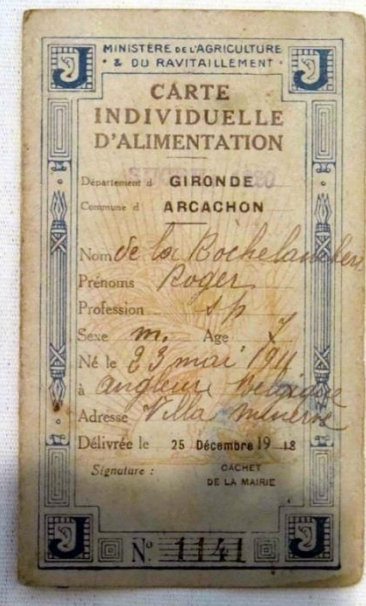 J MINISTÈRE DE L'AGRICULTURE J
& DU RAVITAILLEMENT
CARTE
INDIVIDUELLE
D'ALIMENTATION
Département d GIRONDE
Commune d ARCACHON
Nom de la Rochelambert
Prénoms Roger
Profession sp
Sexe m. Age 7
Né le 23 mai 1911
à Angleur Belgique
Adresse Villa Minerve
Délivrée le 25 Décembre 19 18
Signature : CACHET
DE LA MAIRIE
J N° 1141 J